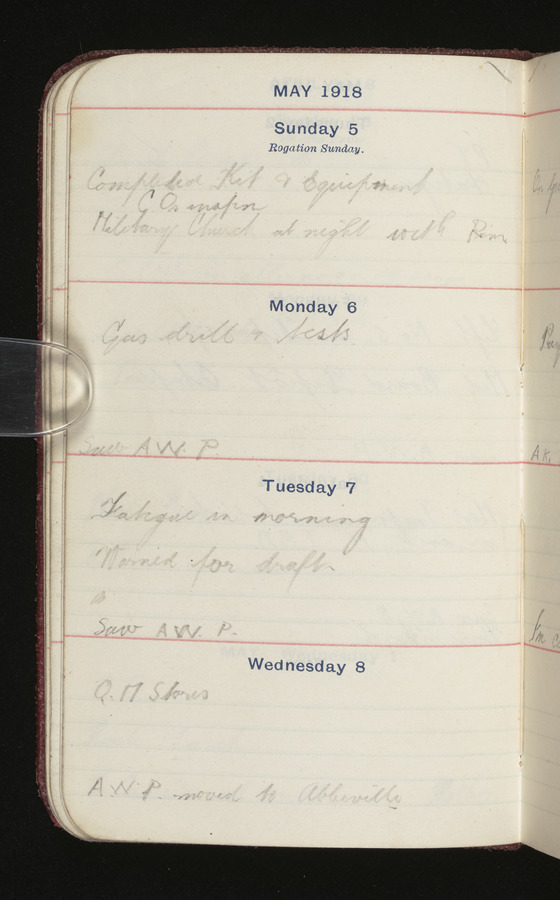 MAY 1918
Sunday 5
Rogation Sunday.
Completed Kit & Equipment
C.O.
Military Church at night with
Monday 6
Gas drill & tests
Saw A.W. P.
Tuesday 7
Fatigue in morning
Warned for draft
Saw A.W. P.
Wednesday 8
Q.M Stores
A.W.P. moved to Abbeville